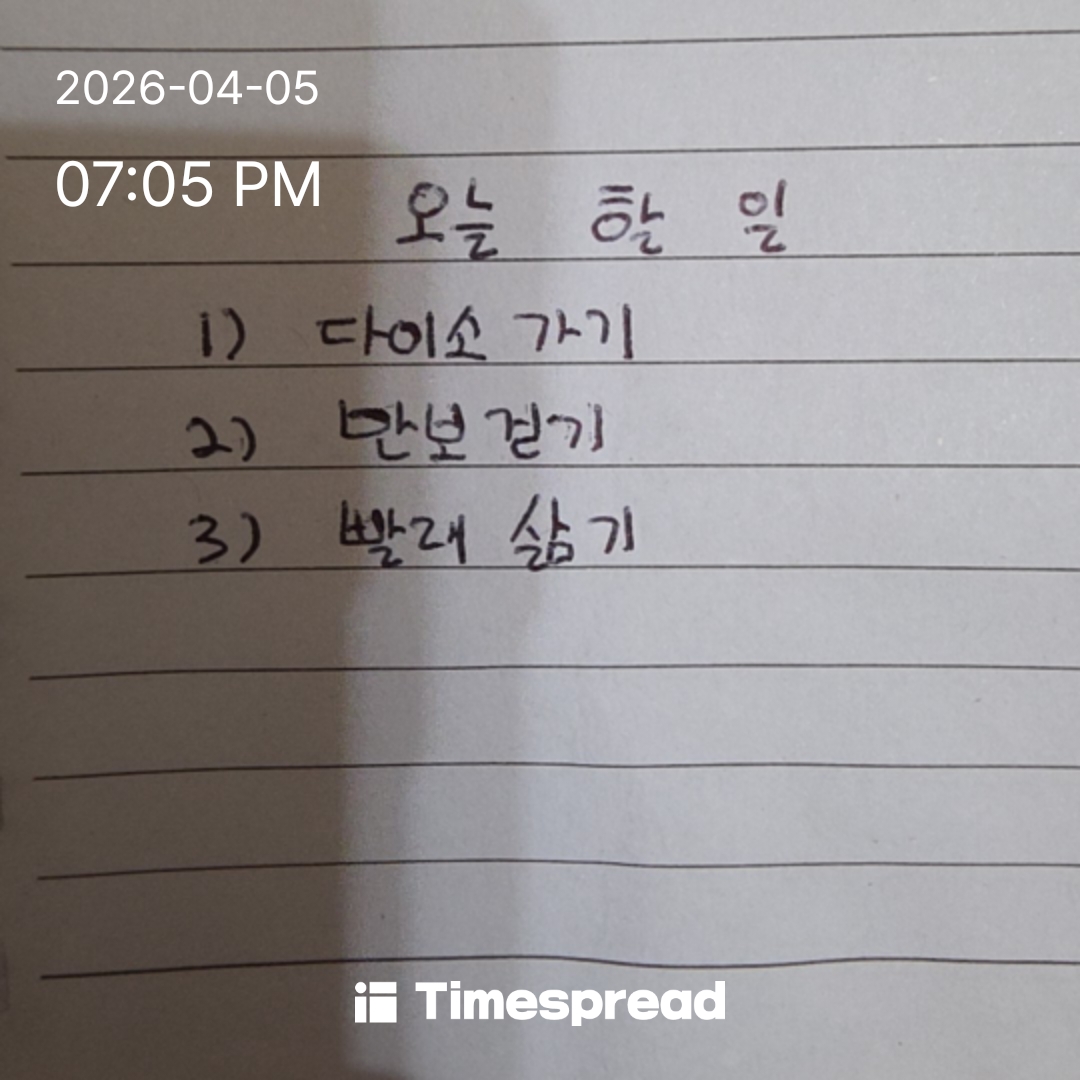 2026-04-05
07:05 PM
오늘 할 일
1) 다이소 가기
2) 만보 걷기
3) 빨래 삶기
Timespread